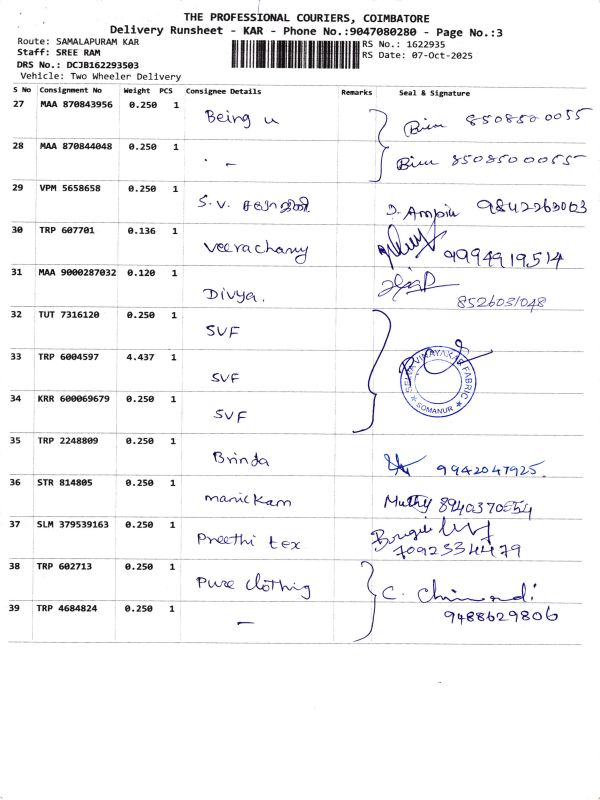 THE PROFESSIONAL COURIERS, COIMBATORE
Delivery Runsheet - KAR - Phone No.:9047080280 - Page No.:3
Route: SAMALAPURAM KAR
RS No.: 1622935
Staff: SREE RAM
RS Date: 07-Oct-2025
DRS No.: DCJB162293503
Vehicle: Two Wheeler Delivery
S No Consignment No Weight PCS Consignee Details Remarks Seal & Signature
27 MAA 870843956 0.250 1 Being u 8508500055
28 MAA 870844048 0.250 1 " - 8508500055
29 VPM 5658658 0.250 1 S.V. 9842263003
30 TRP 607701 0.136 1 Veerachamy 9994919514
31 MAA 9000287032 0.120 1 Divya. 8526031048
32 TUT 7316120 0.250 1 SVF
33 TRP 6004597 4.437 1 SVF
SELVA VINAYAKAR FABRIC
SOMANUR
34 KRR 600069679 0.250 1 SVF
35 TRP 2248809 0.250 1 Brinda 9942047925.
36 STR 814805 0.250 1 manickam Muthy 8940370554
37 SLM 379539163 0.250 1 Preethi tex
7092334479
38 TRP 602713 0.250 1 Pure clothing C.
39 TRP 4684824 0.250 1 - 9488629806